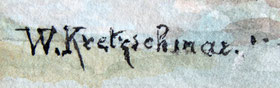 W. Kretzschmar.